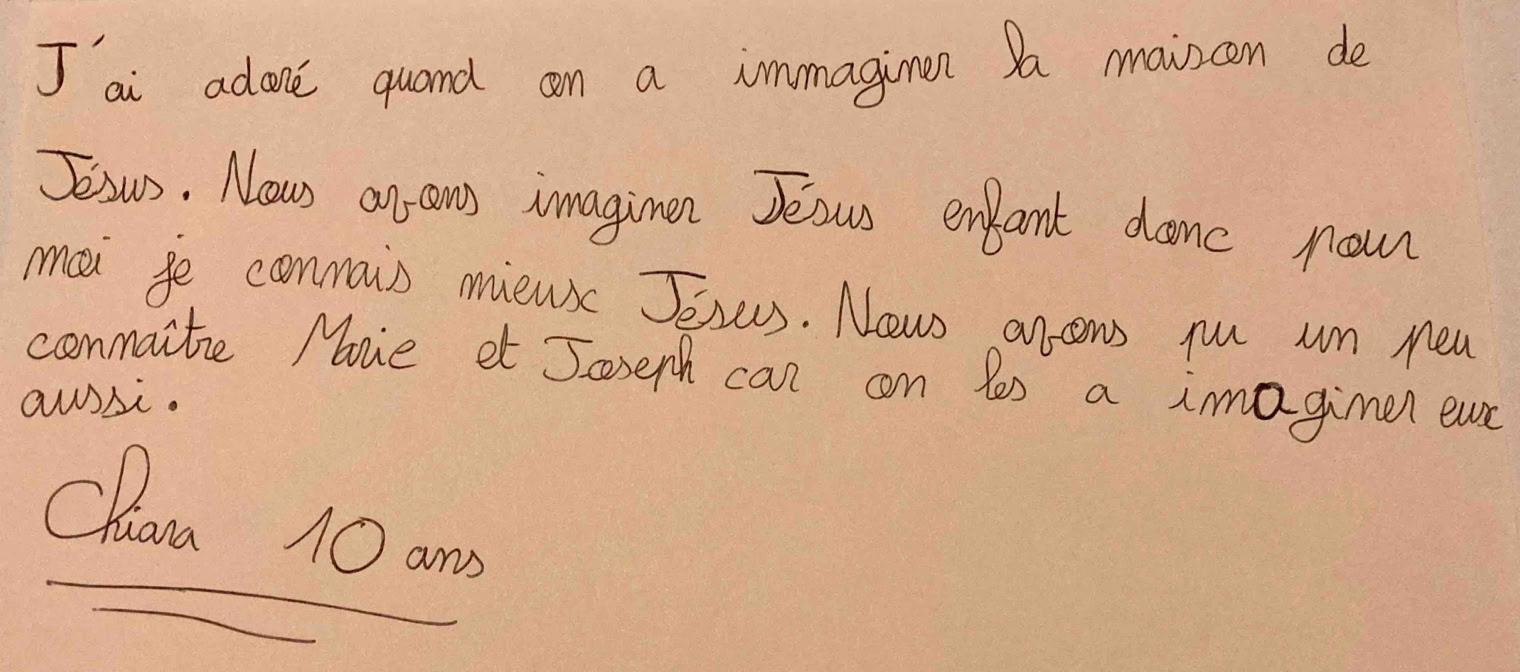 J'ai adoré quand on a immaginer la maison de
Jésus. Nous avons imaginer Jésus enfant donc pour
moi je connais mieux Jésus. Nous avons pu un peu
connaître Marie et Joseph car on les a imaginer eux
aussi.
Chiara 10 ans